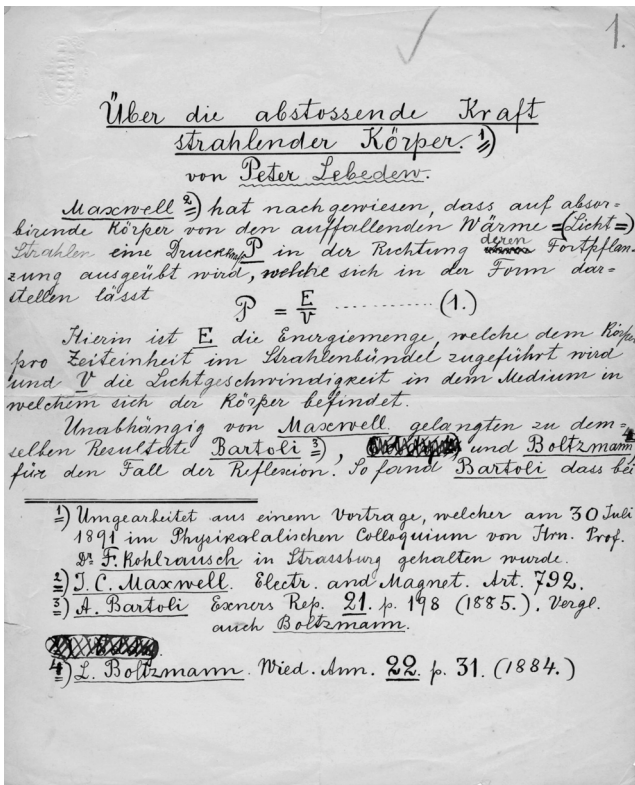 1.
Über die abstossende Kraft
strahlender Körper. 1)
von Peter Lebedew.
Maxwell 2) hat nachgewiesen, dass auf absor=
birende Körper von den auffallenden Wärme=(Licht=)
Strahlen eine Druckkraft P in der Richtung deren Fortpflan=
zung ausgeübt wird, welche sich in der Form dar=
stellen lässt
P = E/V ............ (1.)
Hierin ist E die Energiemenge, welche dem Körper
pro Zeiteinheit im Strahlenbündel zugeführt wird
und V die Lichtgeschwindigkeit in dem Medium in
welchem sich der Körper befindet.
Unabhängig von Maxwell gelangten zu dem=
selben Resultate Bartoli 3), und Boltzmann 4)
für den Fall der Reflexion. So fand Bartoli dass bei
1) Umgearbeitet aus einem Vortrage, welcher am 30 Juli
1891 im Physikalalischen Colloquium von Hrn. Prof.
Dr F. Kohlrausch in Strassburg gehalten wurde.
2) J. C. Maxwell. Electr. and Magnet. Art. 792.
3) A. Bartoli Exners Rep. 21. p. 198 (1885.). Vergl.
auch Boltzmann.
4) L. Boltzmann. Wied. Ann. 22. p. 31. (1884.)